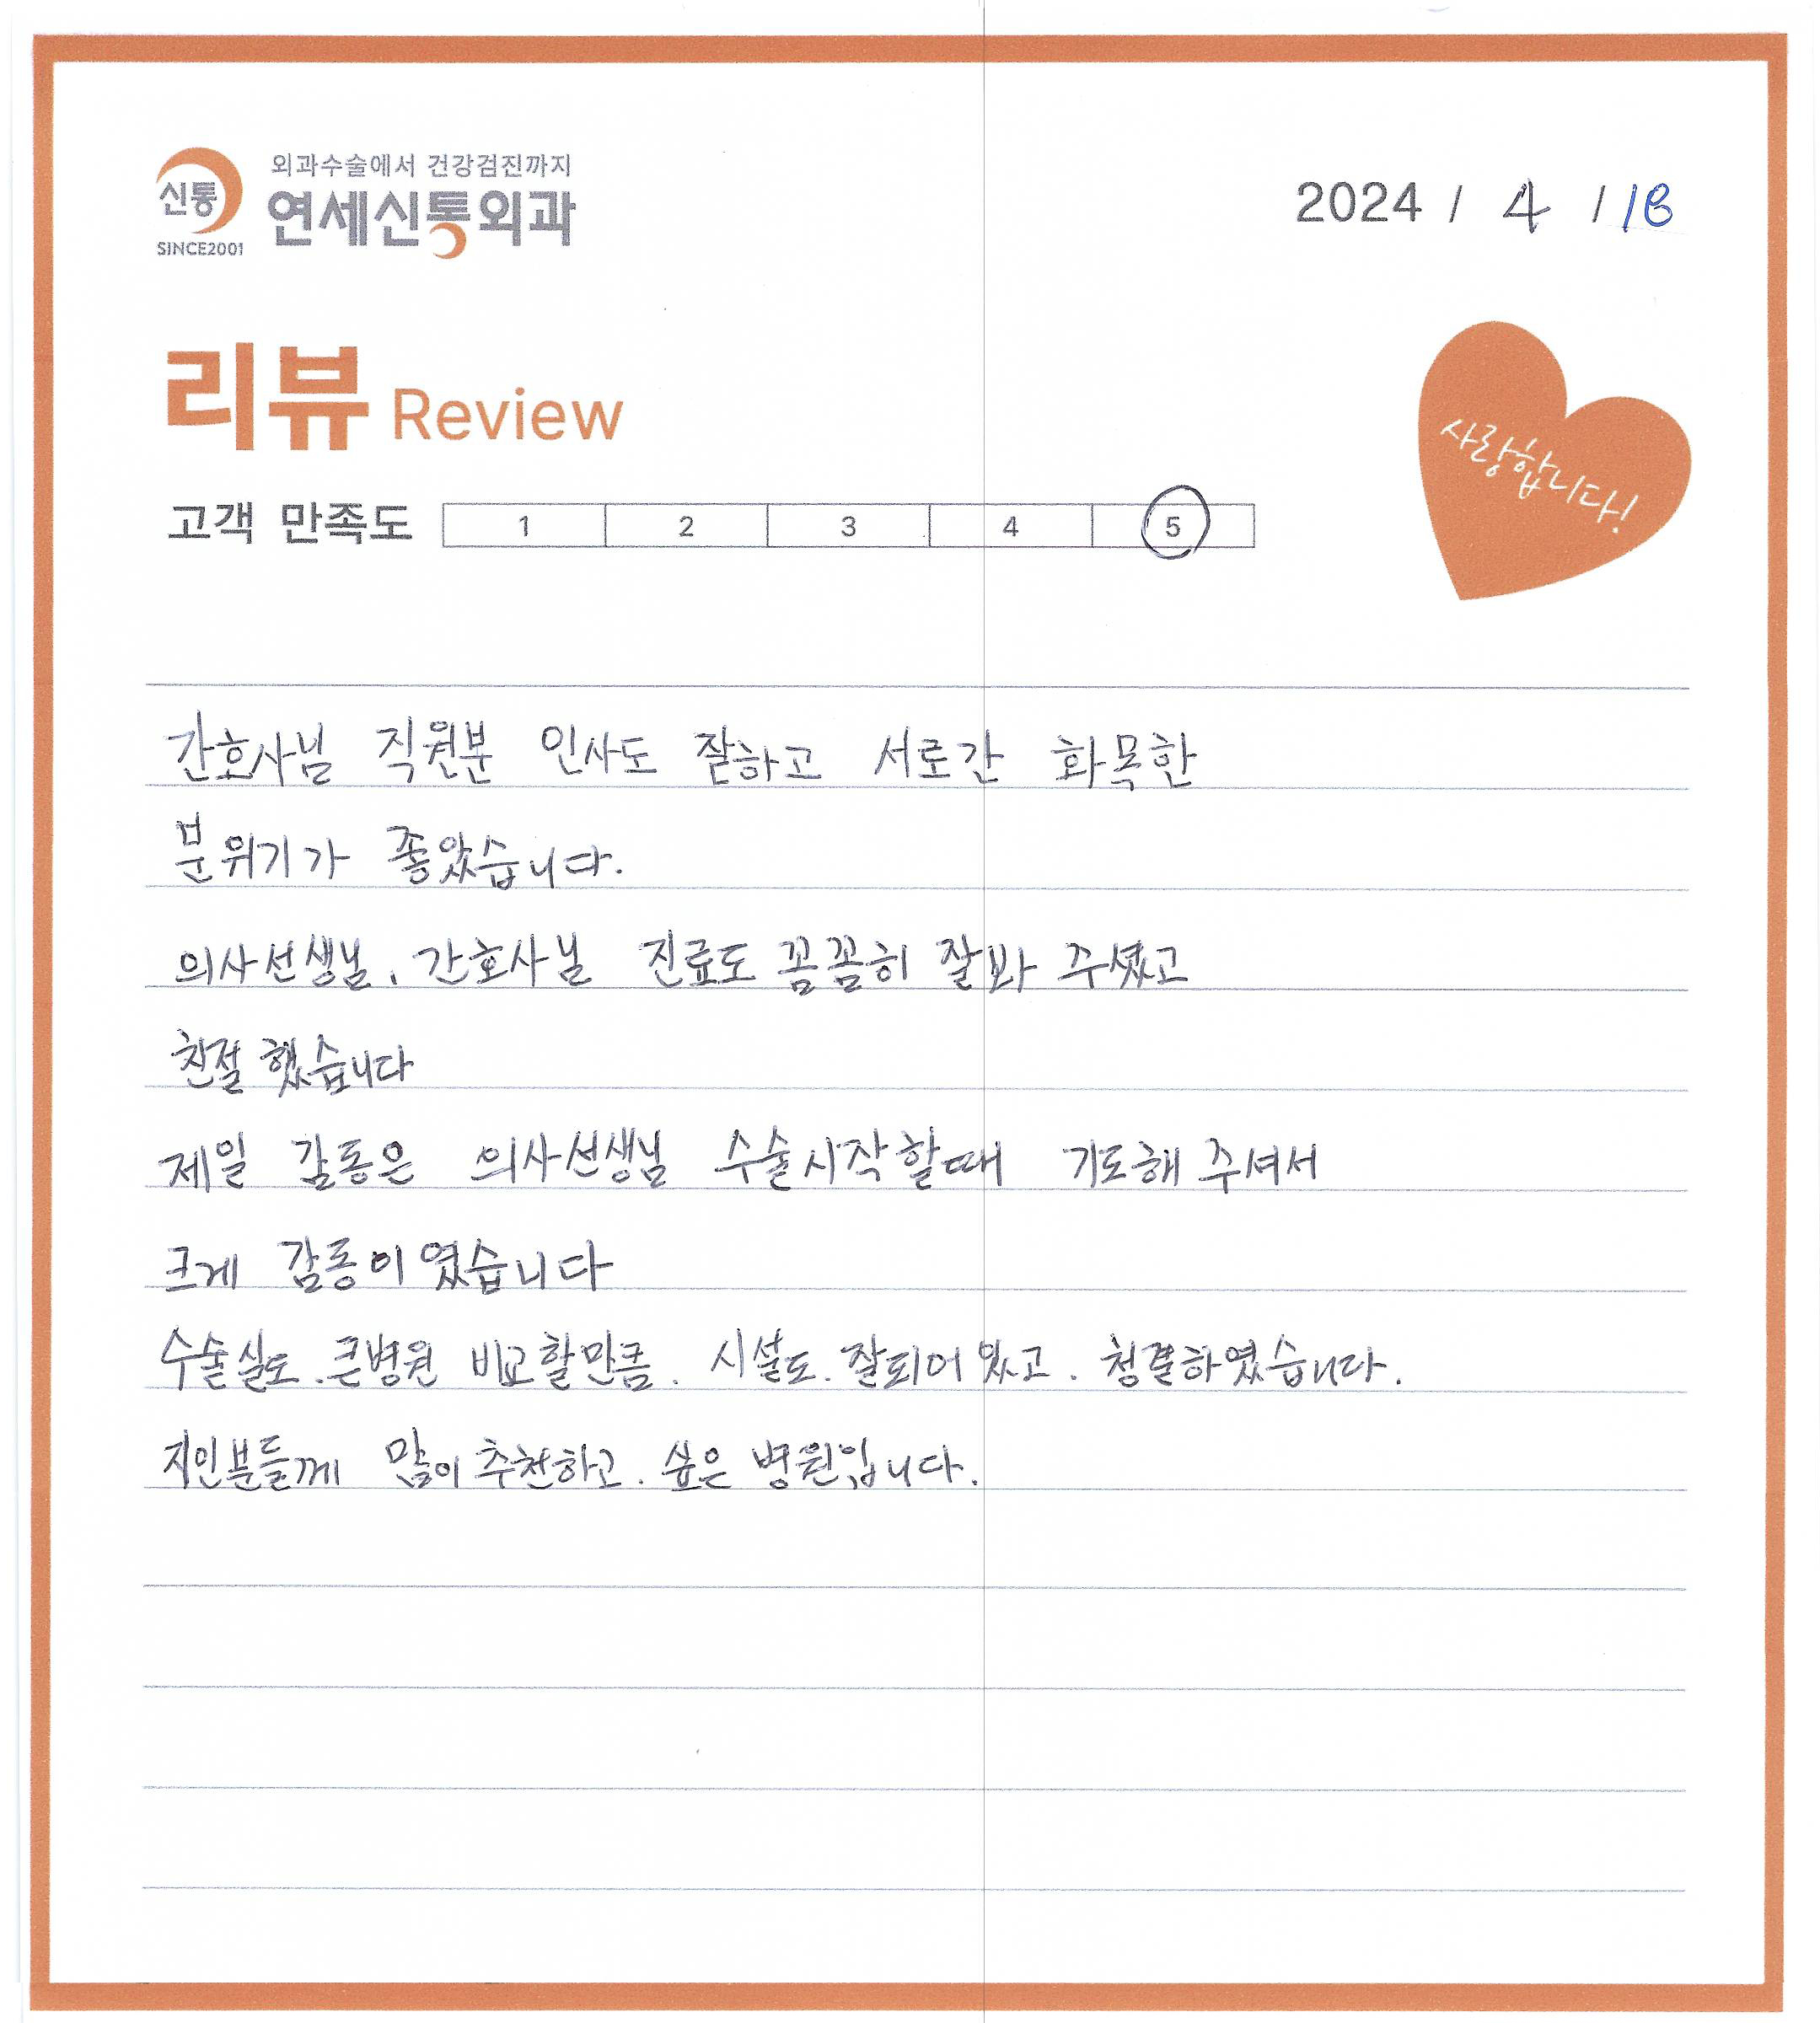 외과수술에서 건강검진까지
신통
연세신통외과
SINCE2001
2024 / 4 / 18
리뷰 Review
사랑합니다!
고객 만족도 1 2 3 4 5
간호사님 직원분 인사도 잘하고 서로간 화목한
분위기가 좋았습니다.
의사선생님, 간호사님 진료도 꼼꼼히 잘봐 주셨고
친절 했습니다
제일 감동은 의사선생님 수술시작할때 기도해 주셔서
크게 감동이 였습니다
수술실도. 큰병원 비교할만큼. 시설도. 잘되어 있고. 청결하였습니다.
지인분들께 많이 추천하고. 싶은 병원입니다.